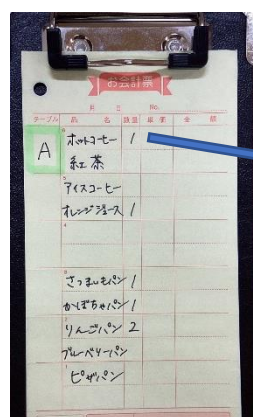 お会計票
月 日 No.
テーブル 品 名 数量 単価 金 額
A ホットコーヒー 1
紅茶
アイスコーヒー
オレンジジュース 1
さつまいもパン 1
かぼちゃパン 1
りんごパン 2
ブルーベリーパン
ピザパン